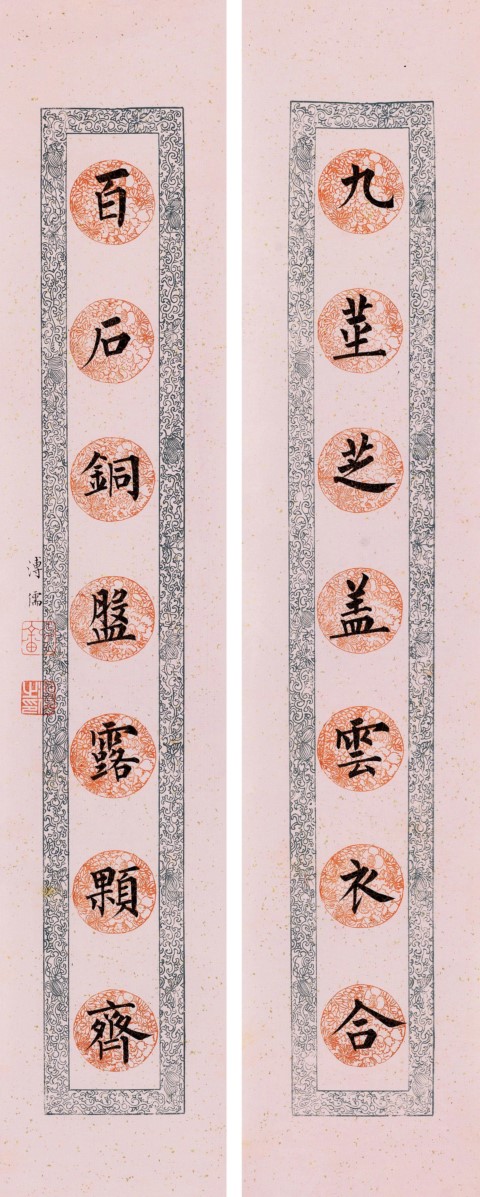 九莖芝盖雲衣合
百石銅盤露顆齊
溥儒